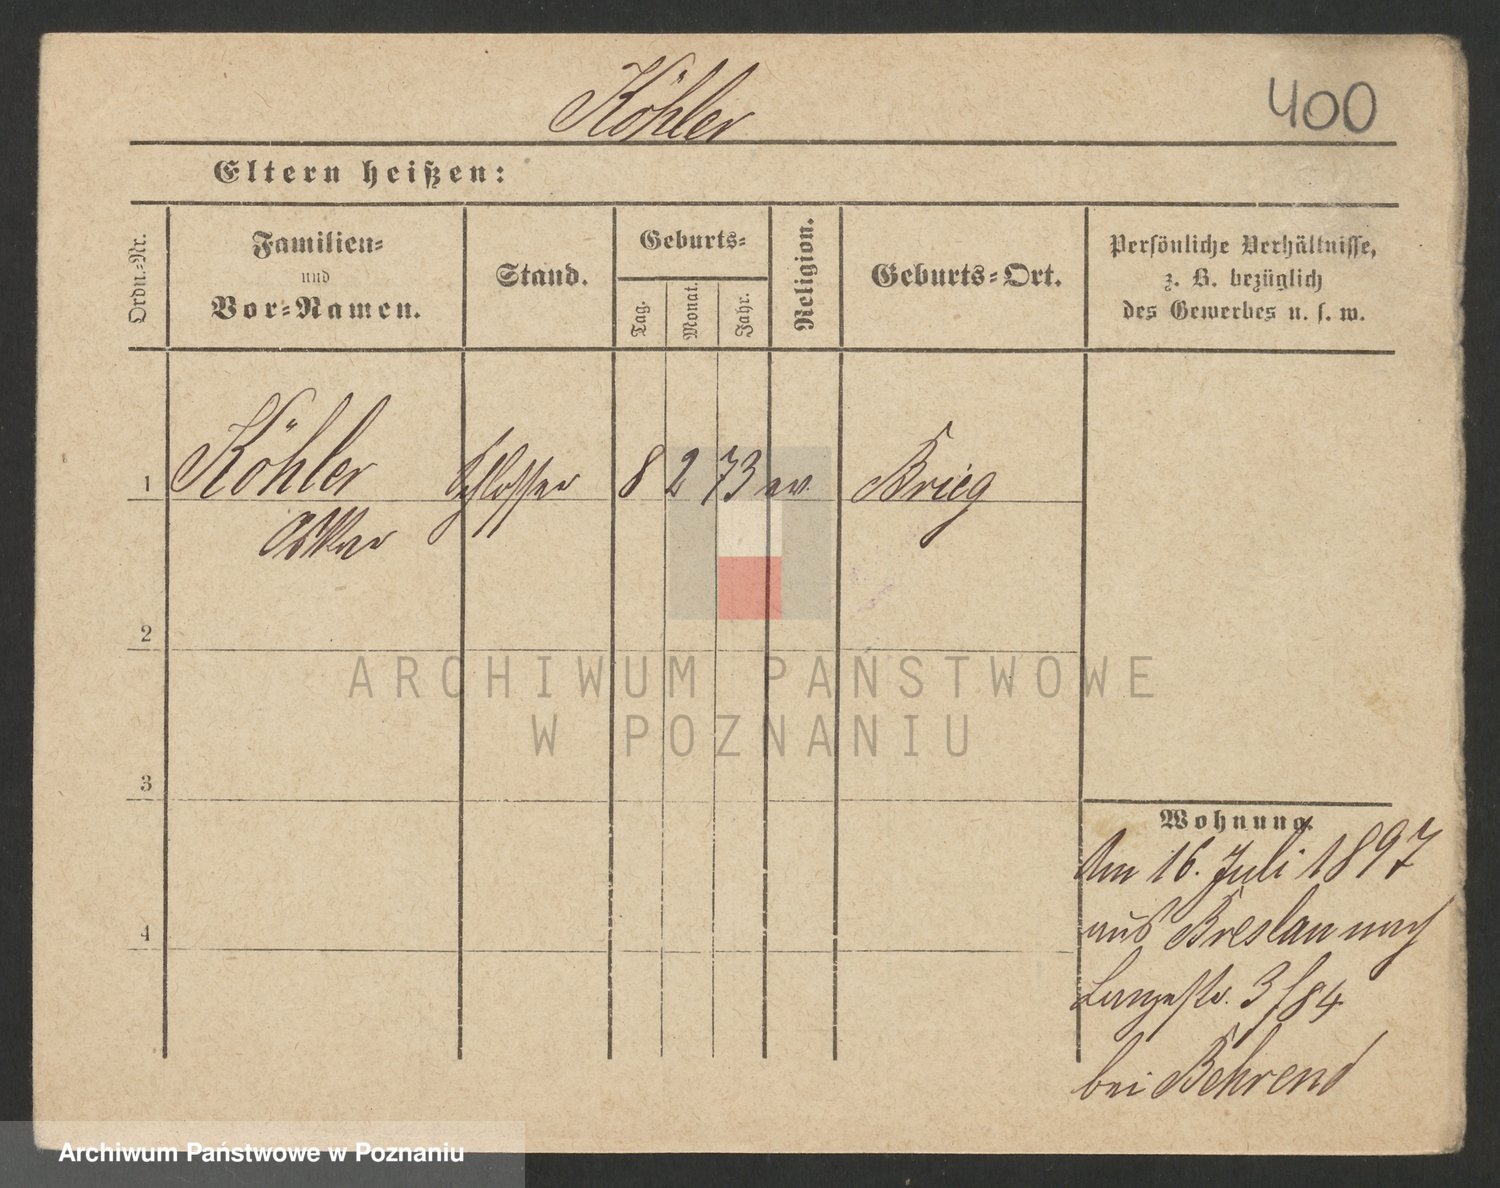 Köhler
400
Eltern heißen:
Ordn.-Nr.
Familien-
und
Vor-Namen.
Stand.
Geburts-
Tag.
Monat.
Jahr.
Religion.
Geburts-Ort.
Persönliche Verhältnisse,
z. B. bezüglich
des Gewerbes u. s. w.
1 Köhler Schlosser 8 2 73 ev. Brieg
Oskar
2
3
4
Wohnung.
Am 16. Juli 1897
aus Breslau nach
Langestr. 3/84
bei Behrend
ARCHIWUM PAŃSTWOWE
W POZNANIU
Archiwum Państwowe w Poznaniu